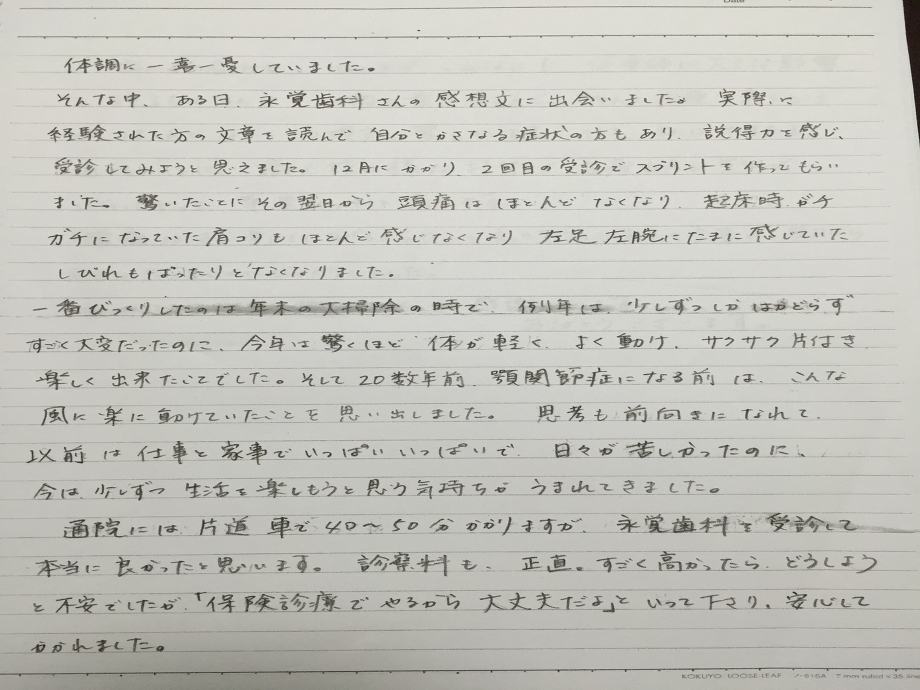 Date
体調に一喜一憂していました。
そんな中、ある日、永覚歯科さんの感想文に出会いました。実際に
経験された方の文章を読んで自分とかさなる症状の方もあり、説得力を感じ、
受診してみようと思えました。12月にかかり、2回目の受診でスプリントを作ってもらい
ました。驚いたことにその翌日から頭痛はほとんどなくなり、起床時ガチ
ガチになっていた肩コリもほとんど感じなくなり左足左腕にたまに感じていた
しびれもぱったりとなくなりました。
一番びっくりしたのは年末の大掃除の時で、例年は、少しずつしかはかどらず
すごく大変だったのに、今年は驚くほど体が軽く、よく動け、サクサク片付き
楽しく出来たことでした。そして20数年前、顎関節症になる前は、こんな
風に楽に動けていたことを思い出しました。思考も前向きになれて、
以前は仕事と家事でいっぱいいっぱいで、日々が苦しかったのに、
今は、少しずつ生活を楽しもうと思う気持ちがうまれてきました。
通院には片道車で40〜50分かかりますが、永覚歯科を受診して
本当に良かったと思います。診察料も、正直。すごく高かったら、どうしよう
と不安でしたが、「保険診療でやるから大丈夫だよ」といって下さり、安心して
かかれました。
KOKUYO LOOSE-LEAF ノ-816A 7 mm ruled × 35 line